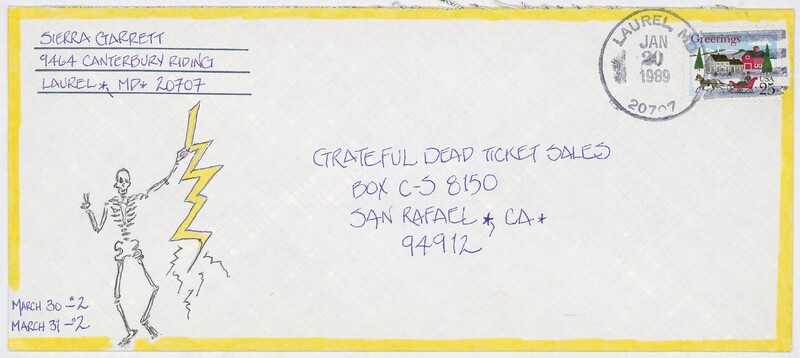 SIERRA GARRETT
9464 CANTERBURY RIDING
LAUREL*, MD* 20707
LAUREL, M
JAN
20
1989
20707
Greetings
USA
25
GRATEFUL DEAD TICKET SALES
BOX C-S 8150
SAN RAFAEL*, CA*
94912
MARCH 30 - #2
MARCH 31 - #2